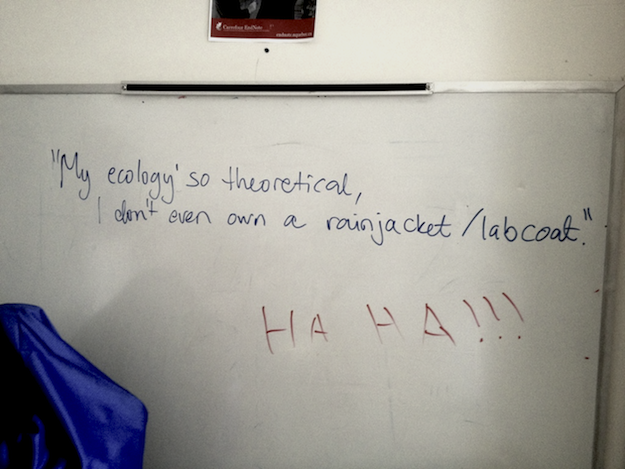 "My ecology' so theoretical,
I don't even own a rainjacket/labcoat."
HA HA!!!